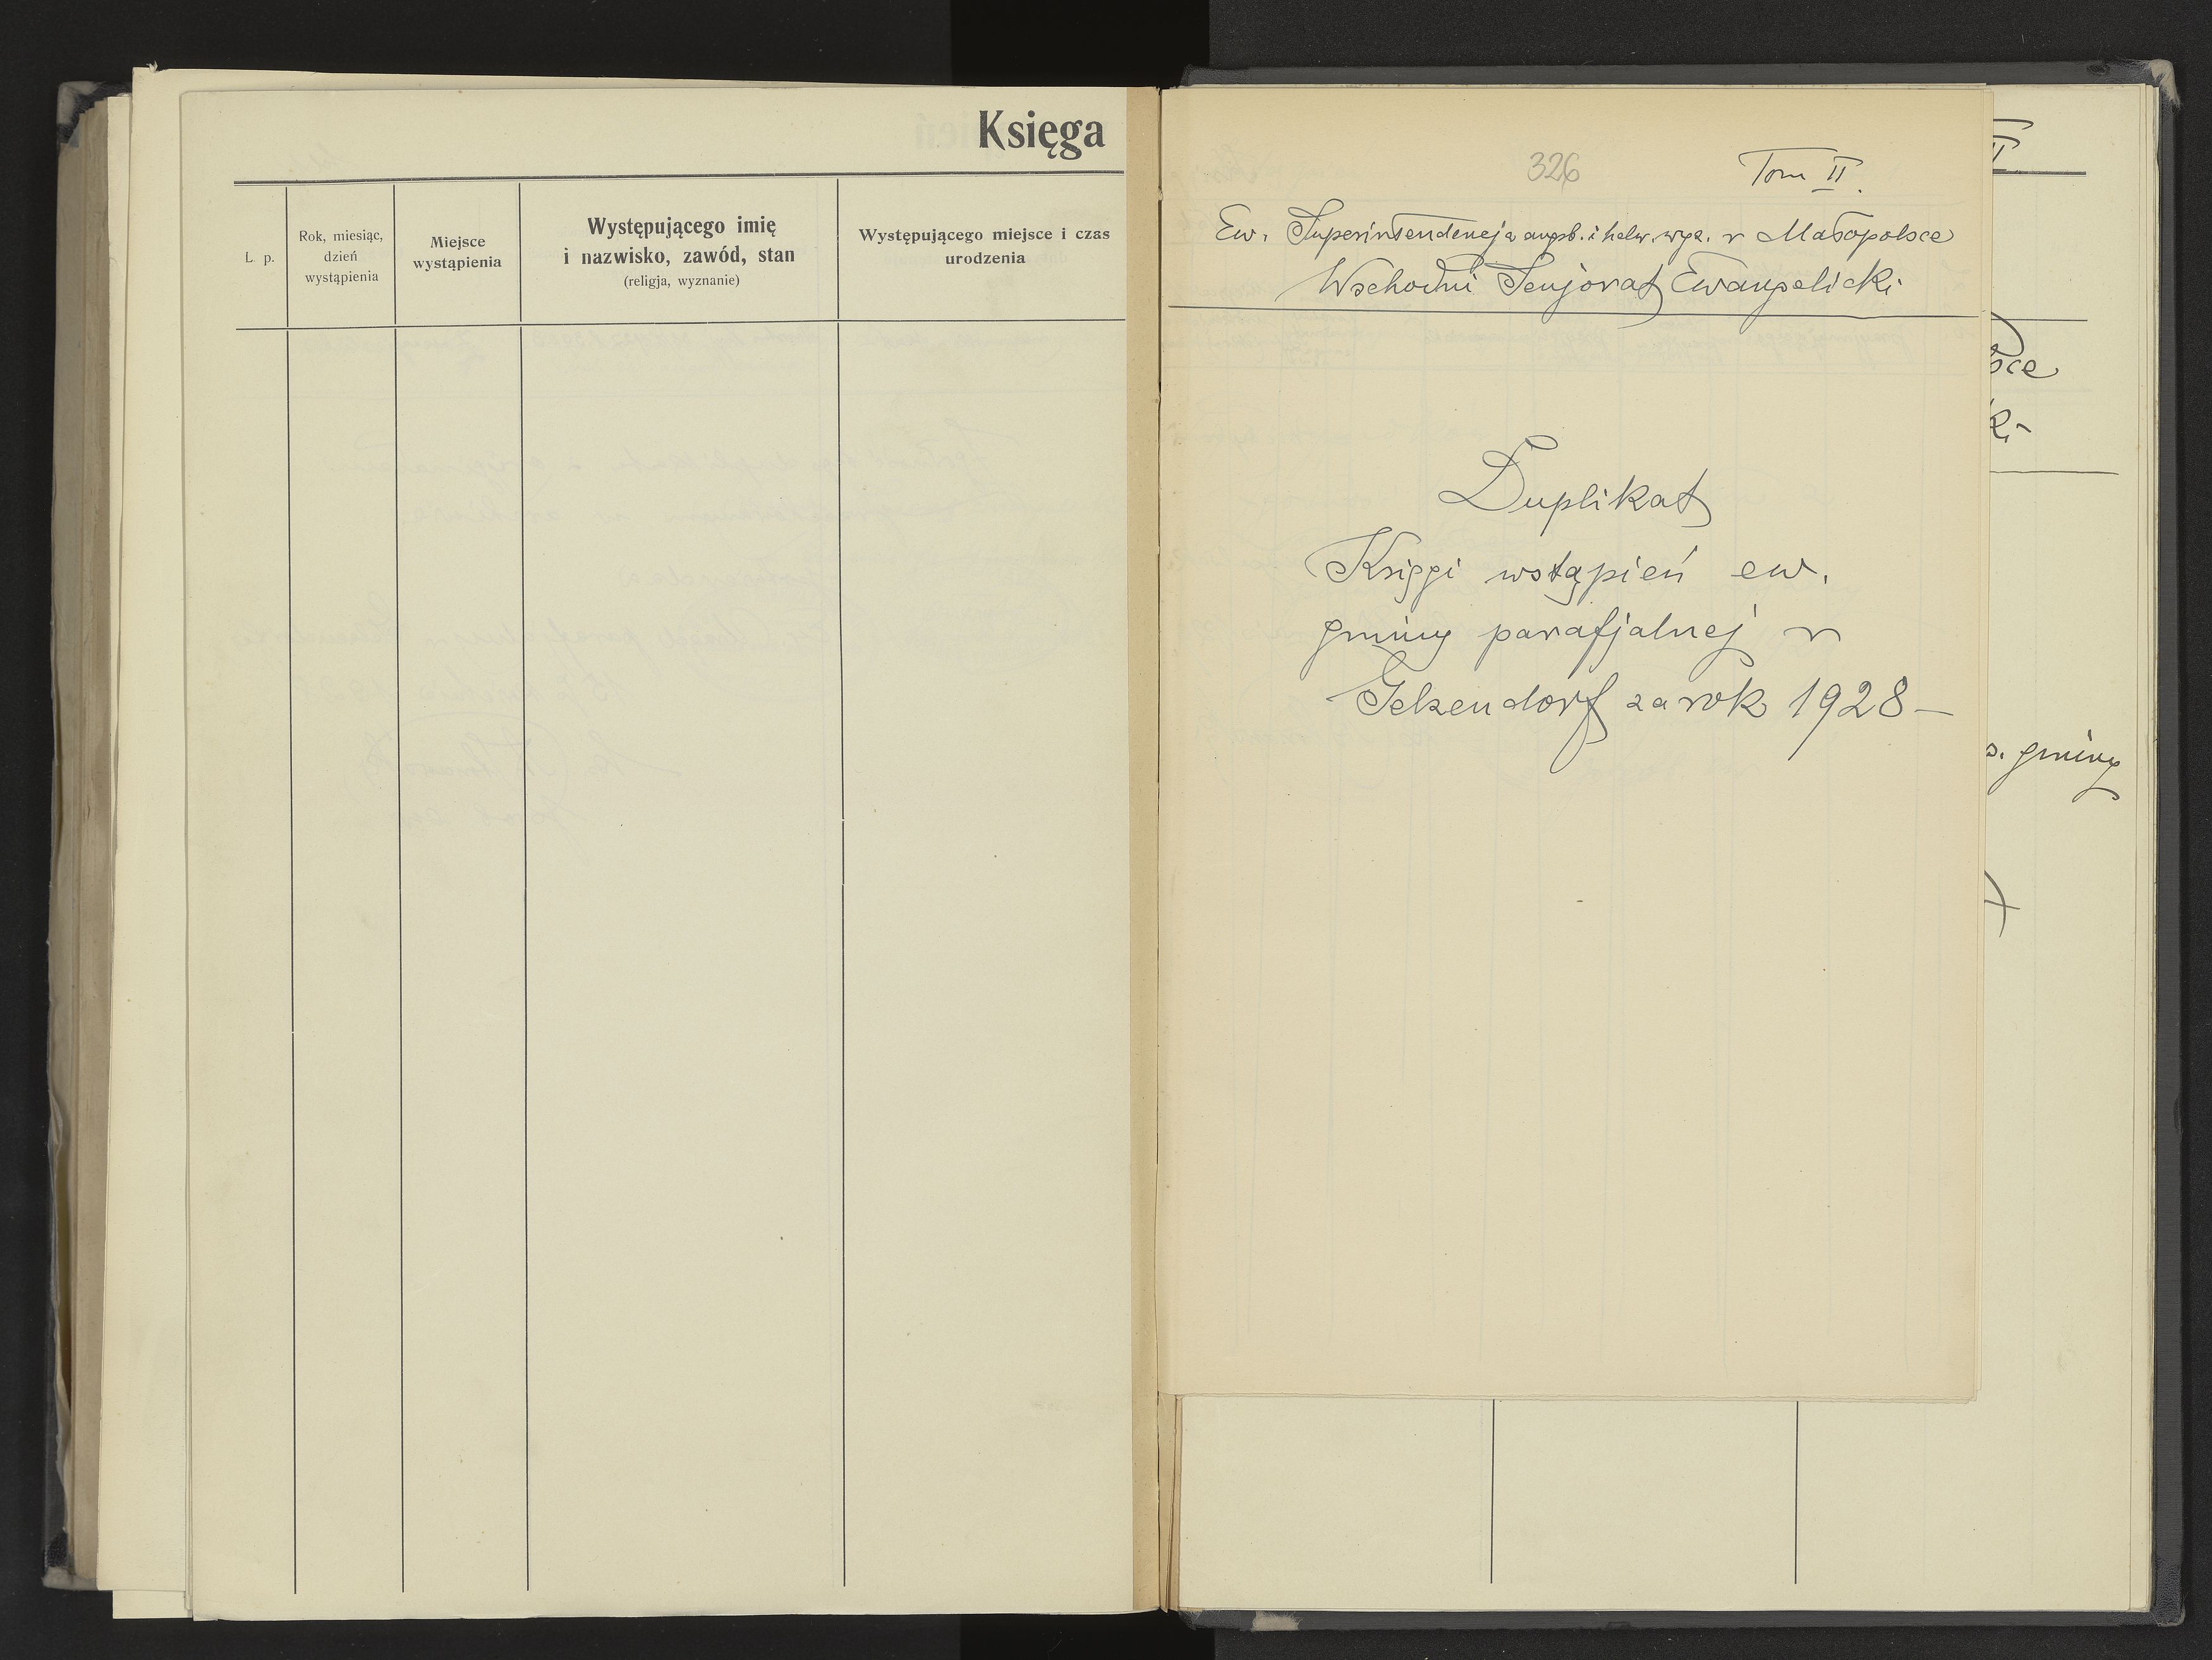 Księga
L. p.
Rok, miesiąc,
dzień
wystąpienia
Miejsce
wystąpienia
Występującego imię
i nazwisko, zawód, stan
(religja, wyznanie)
Występującego miejsce i czas
urodzenia
326
Tom II.
Ew. Superintendencja augsb. i helw. wyz. w Małopolsce
Wschodni Senjorat Ewangelicki
Duplikat
Księgi wstąpień ew.
gminy parafjalnej w
Gelsendorf za rok 1928 –
II
sce
ki
s. gminy